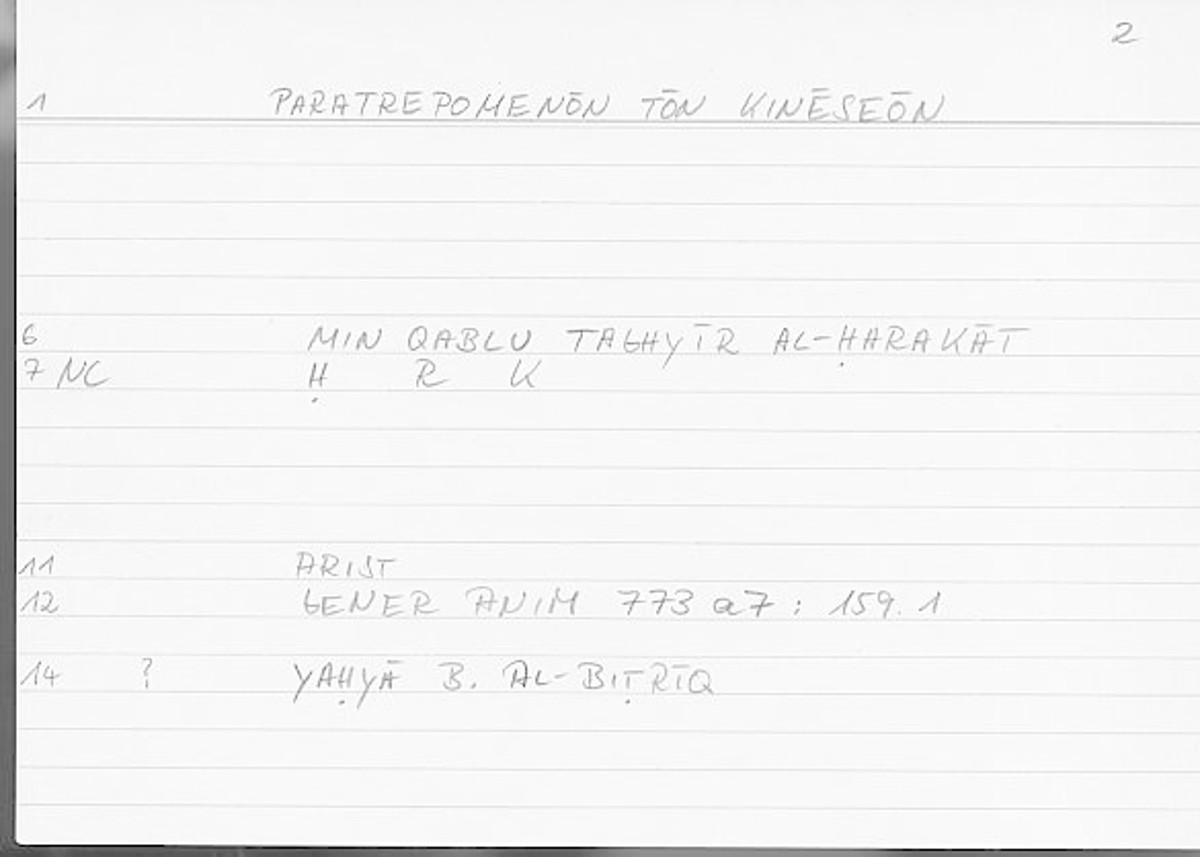 2
1 PARATREPOMENŌN TŌN KINĒSEŌN
6 MIN QABLU TAGHYĪR AL-ḤARAKĀT
7 NC Ḥ R K
11 ARIST
12 GENER ANIM 773 a7 : 159. 1
14 ? YAḤYĀ B. AL-BIṬRĪQ